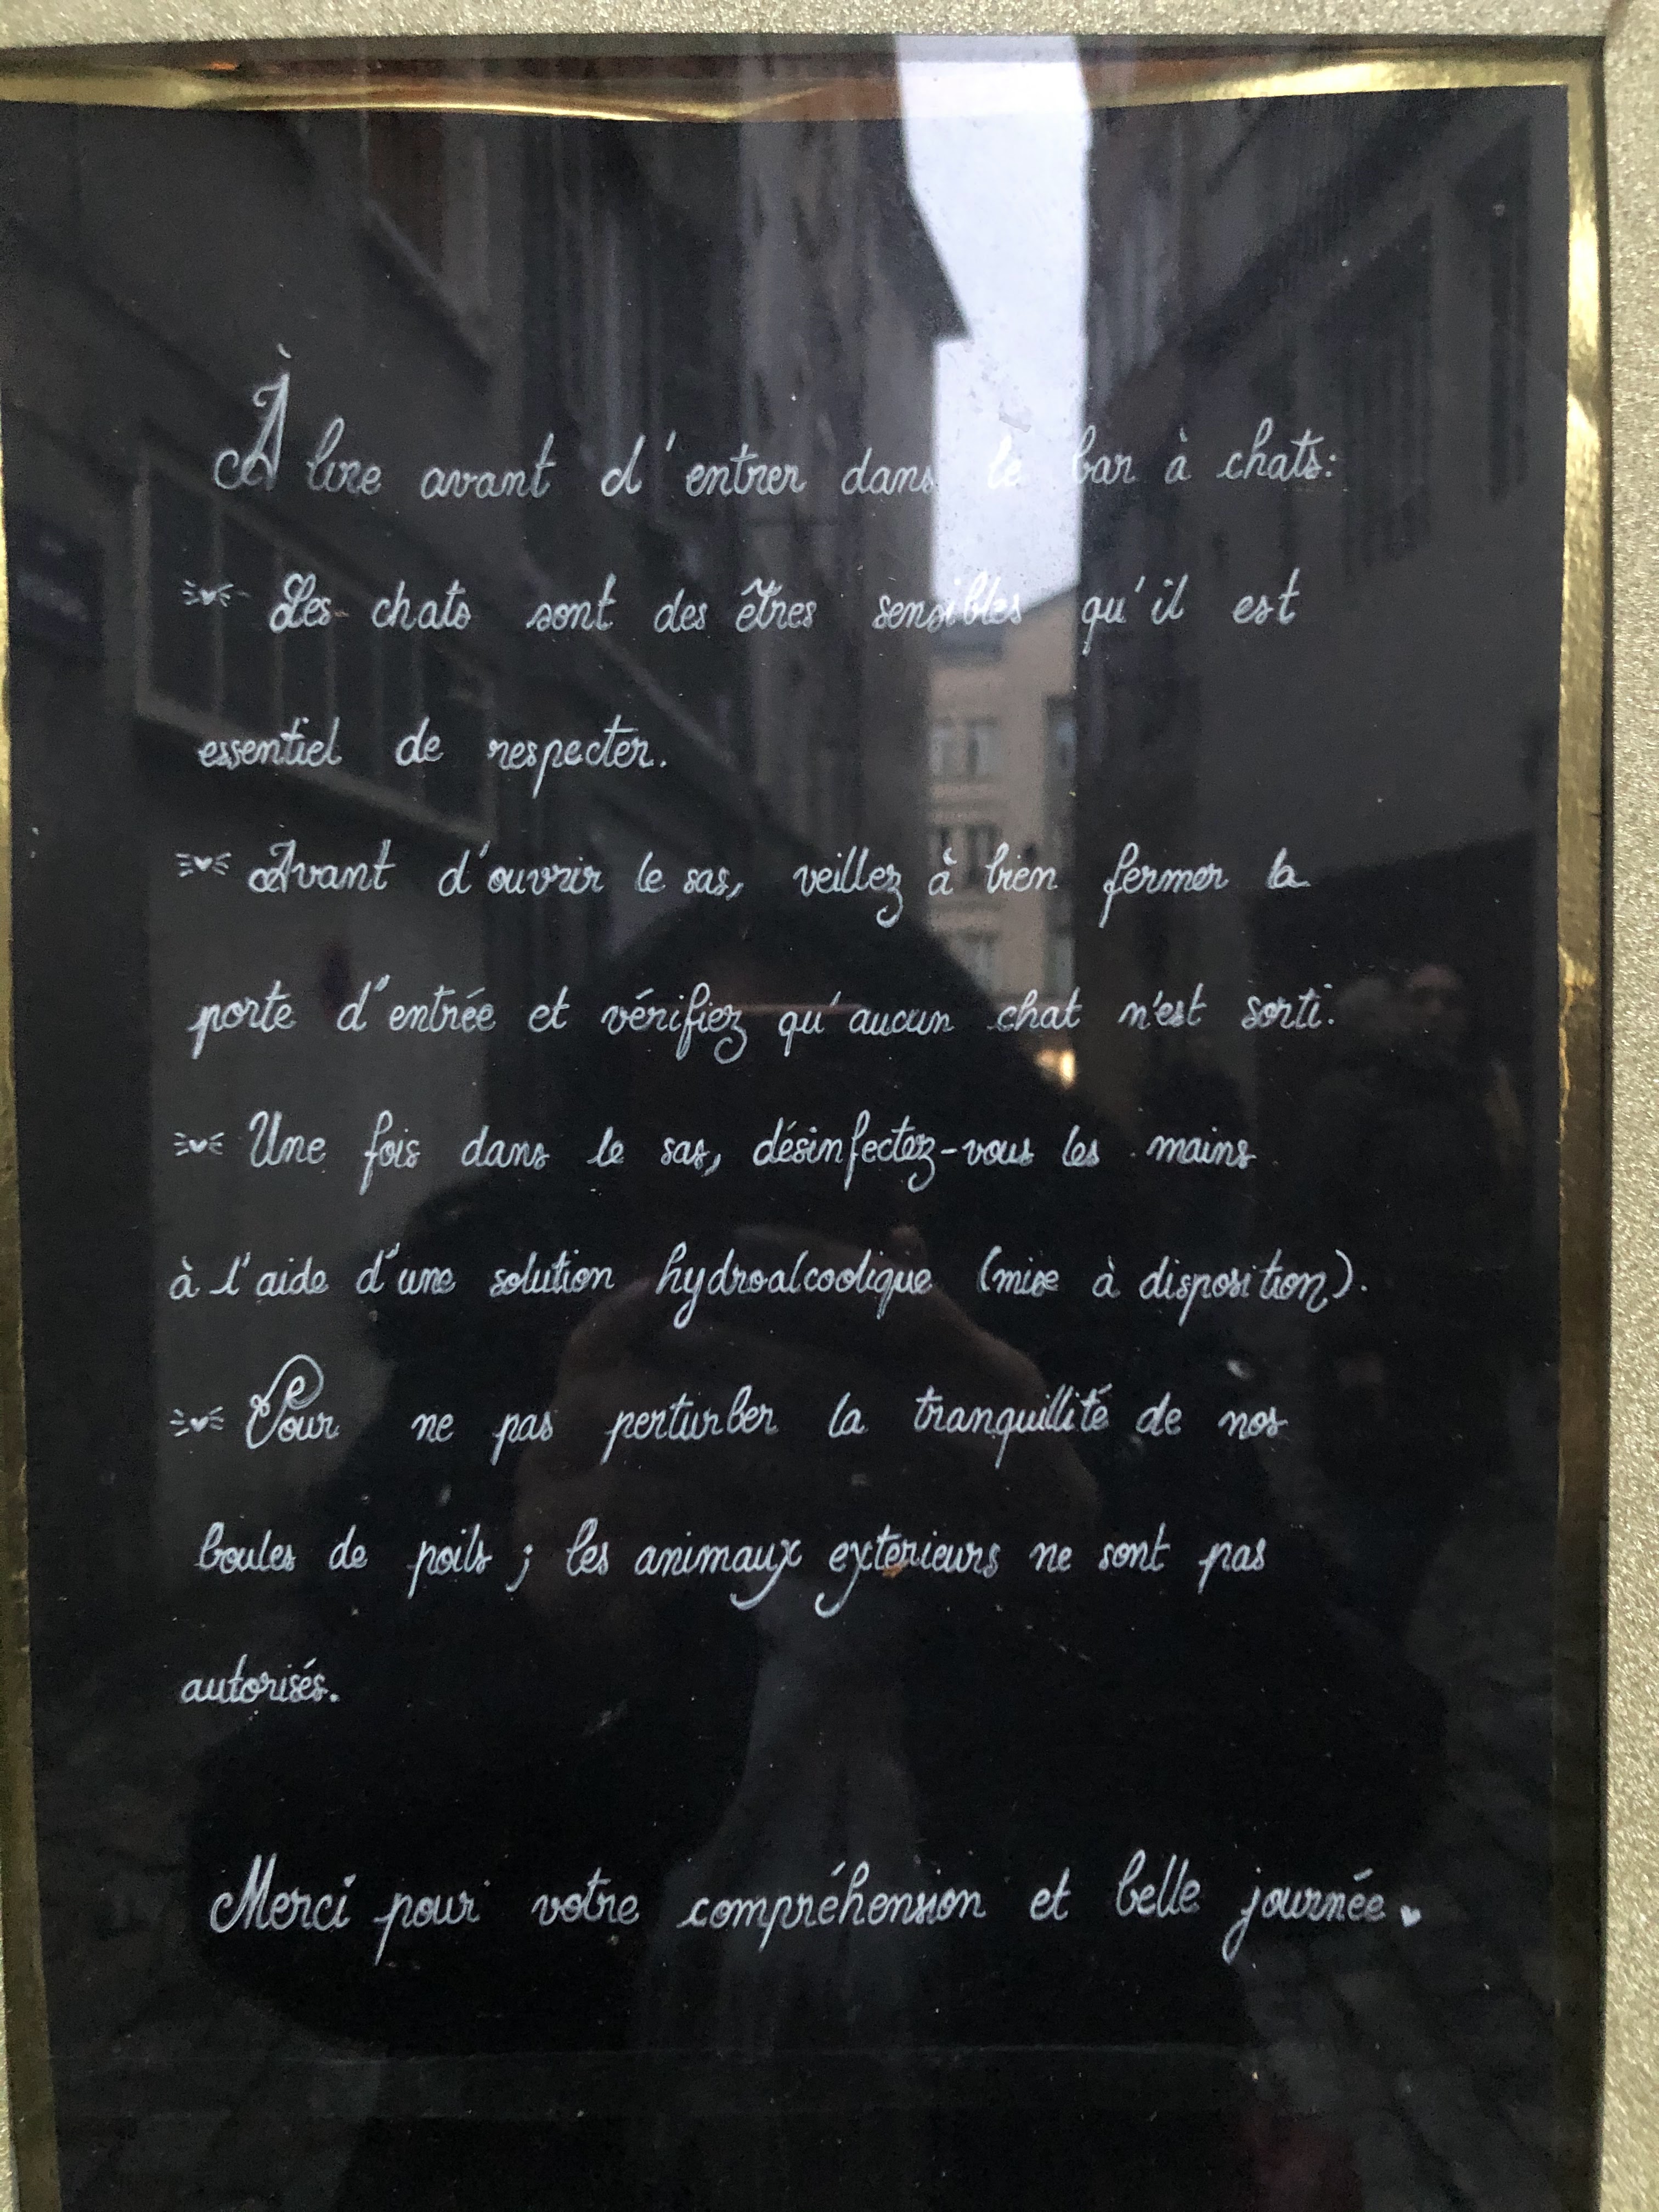 À lire avant d'entrer dans le bar à chats:
Les chats sont des êtres sensibles qu'il est
essentiel de respecter.
Avant d'ouvrir le sas, veillez à bien fermer la
porte d'entrée et vérifiez qu'aucun chat n'est sorti.
Une fois dans le sas, désinfectez-vous les mains
à l'aide d'une solution hydroalcoolique (mise à disposition).
Pour ne pas perturber la tranquillité de nos
boules de poils ; les animaux exterieurs ne sont pas
autorisés.
Merci pour votre compréhension et belle journée.